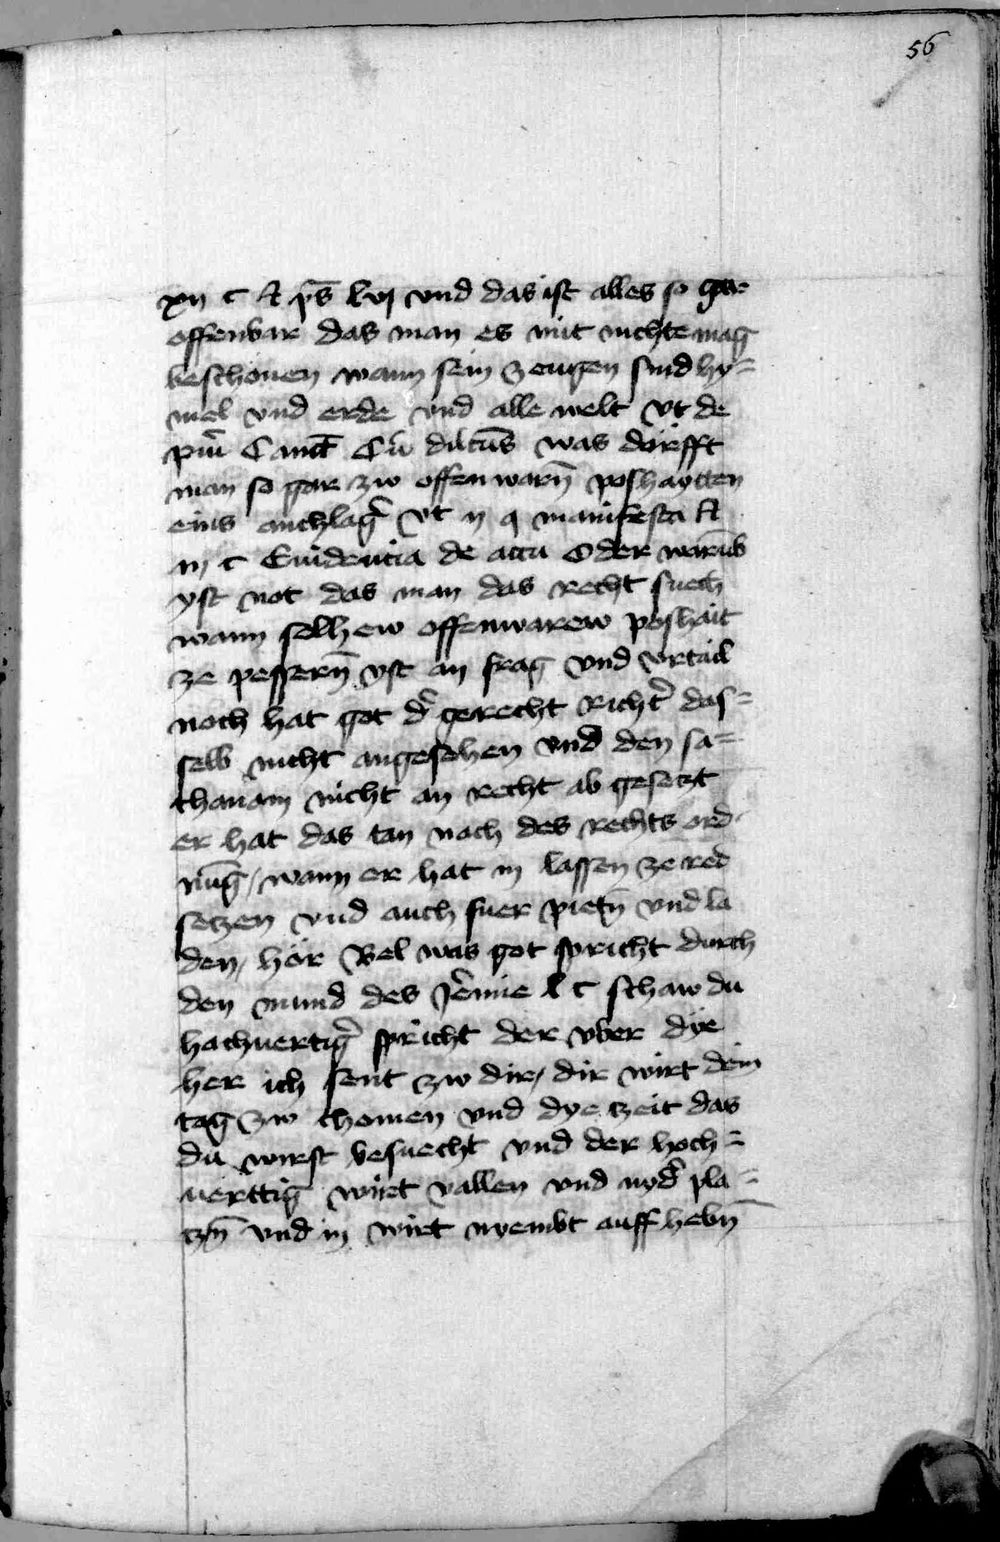 56
xij c Et p̄s lvj vnd das ist alles so gar
offenbar das man es mit nichte mag
beschönen wann sein zeugen sind hy=
mel vnd erde vnd alle welt vt de
Cum dilctūs was dörfft
man so gar zw offenwarn̄ poshaytten
eins anchlag̉ vt ij q manifesta Et
c Euidentia de accu Oder warūb
yst not das man das recht suech
wann solhew offenwarew poshait
ze pessern̄ yst an frag vnd vrtail
noch hat got d̉ gerecht Richt̉ das=
selb nicht angesehen vnd den sa=
thanam nicht an recht ab gesetzt
er hat das tan nach des rechts ord
nūg / wann er hat in lassen ze red
setzen vnd auch fuer pietn̄ vnd la
den / hör Bel was got spricht durch
den mund des Jeremie l c schaw du
hachuertig̉ spricht der vber dye
her ich sent zw dir / dir wirt dein
tag zw chomen vnd dye zeit das
du wirst besuecht vnd der hoch=
uerttig wirt vallen vnd nyd̉ pla=
tzn̄ vnd in wirt nyembt auff hebn̄